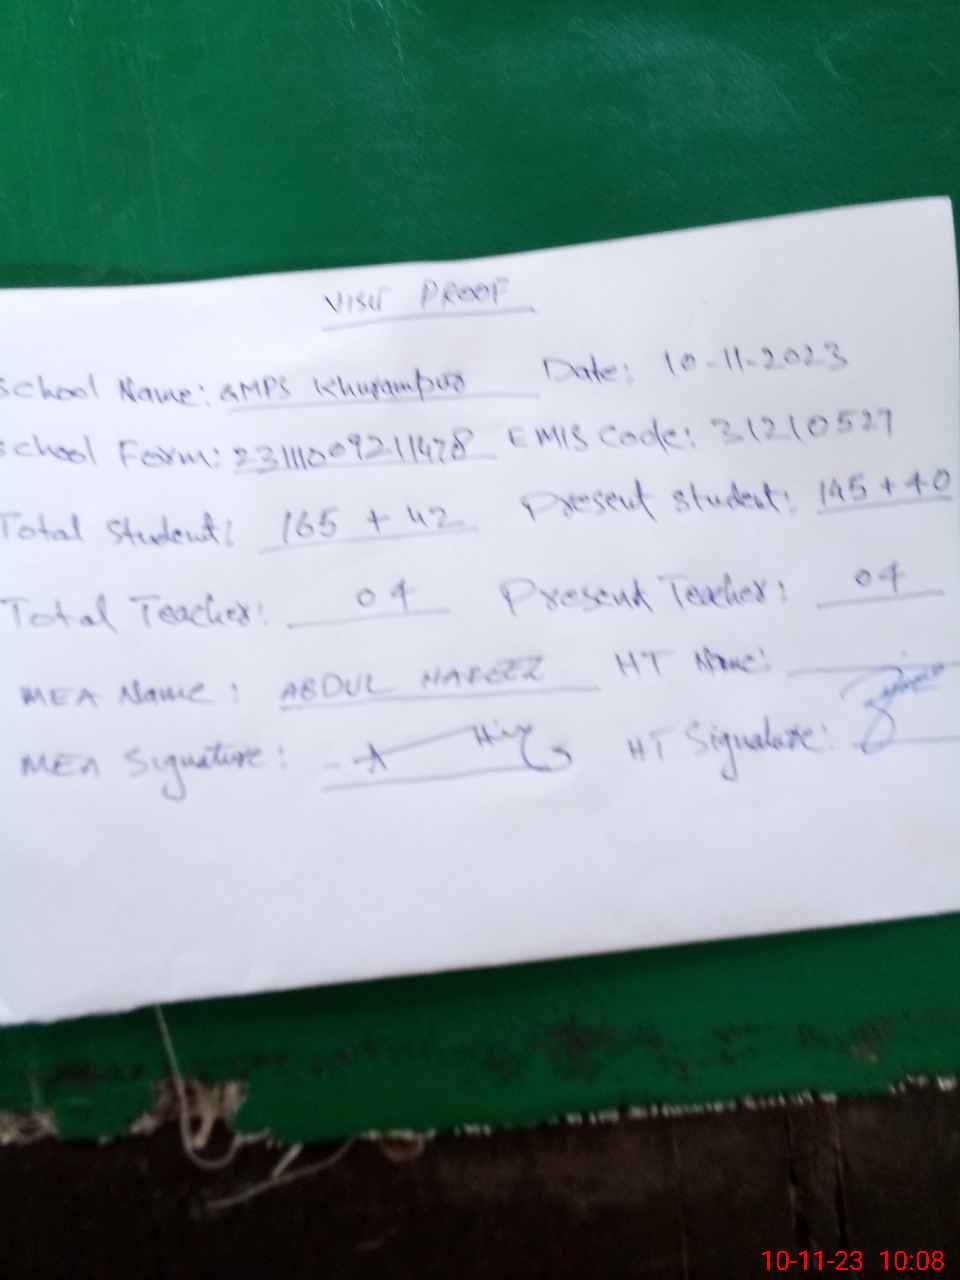 VISIT PROOF
School Name: GMPS Khurampur Date: 10-11-2023
School Form: 23111009211478 EMIS Code: 31210527
Total Student: 165 + 42 Present Student: 145 + 40
Total Teacher: 04 Present Teacher: 04
MEA Name: ABDUL HAFEEZ HT Name:
MEA Signature: HT Signature:
10-11-23 10:08